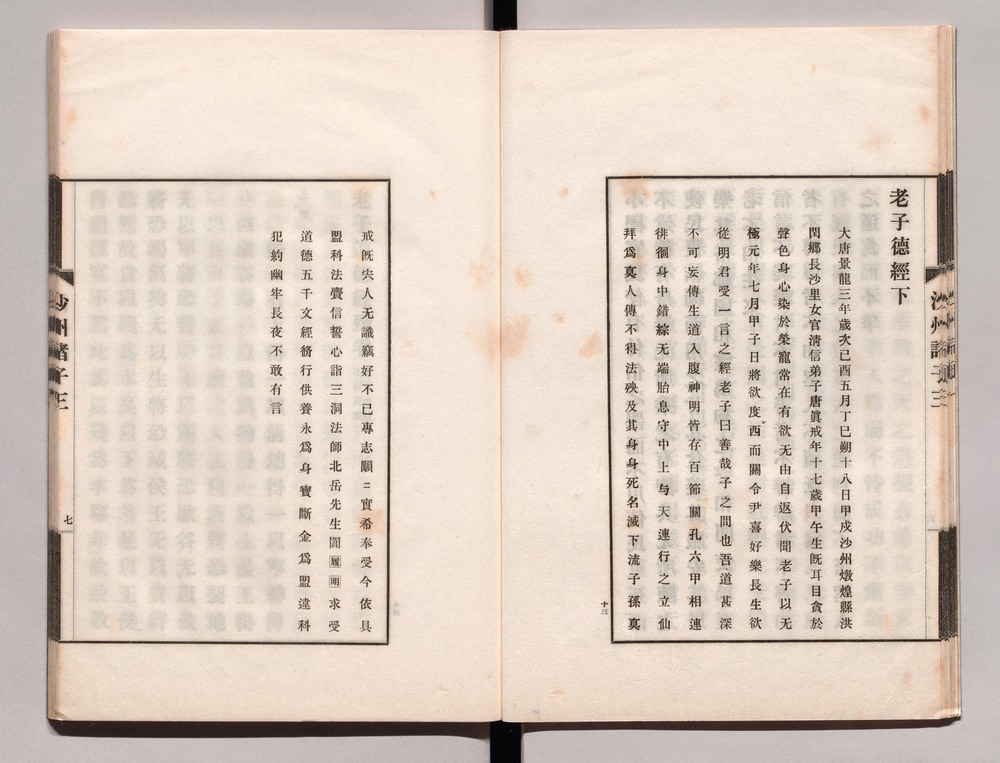 老子德經下
大唐景龍三年歲次己酉五月丁巳朔十八日甲戍沙州燉煌縣洪
閏鄉長沙里女官清信弟子唐眞戒年十七歲甲午生旣耳目貪於
聲色身心染於榮寵常在有欲无由自返伏聞老子以无
極元年七月甲子日將欲度西而關令尹喜好樂長生欲
從明君受一言之經老子曰善哉子之問也吾道甚深
不可妄傳生道入腹神明皆存百節關孔六甲相連
徘徊身中錯綜无端胎息守中上与天連行之立仙
拜爲真人傳不得法殃及其身身死名滅下流子孫真
十三
戒旣肉人无識竊好不已專志顒〻實希奉受今依具
盟科法賫信誓心詣三洞法師北岳先生閻履明求受
道德五千文經篩行供養永爲身寶斷金爲盟違科
犯約幽牢長夜不敢有言
沙州諸子三
七